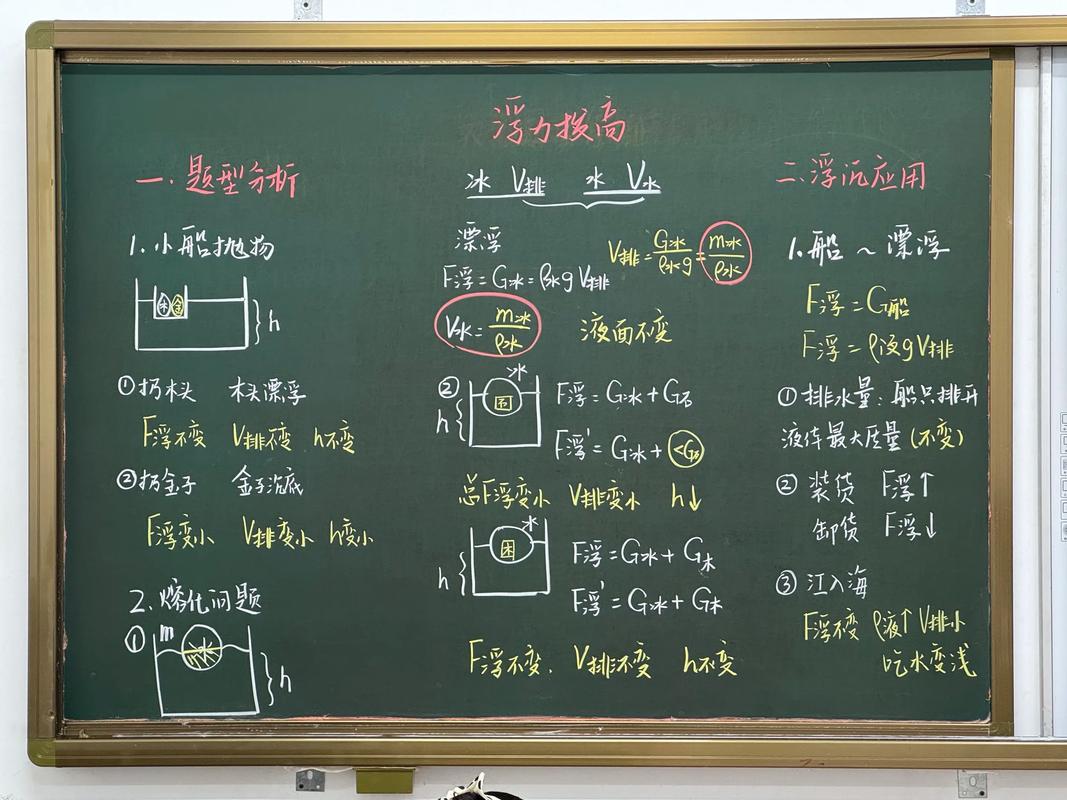 浮力拔高
一.题型分析
1.小船抛物
木 金
h
①扔木头 木头漂浮
F浮不变 V排不变 h不变
②扔金子 金子沉底
F浮变小 V排变小 h变小
2.熔化问题
① m 冰
h
冰 V排 水 V水
漂浮
F浮=G冰=ρ水gV排
V排=G冰/ρ水g=m冰/ρ水
V水=m冰/ρ水 液面不变
② 冰
h
F浮=G冰+G石
F浮'=G冰+<G石
总F浮变小 V排变小 h↓
冰
h
F浮=G冰+G木
F浮'=G冰+G木
F浮不变. V排不变 h不变
二.浮沉应用
1.船~漂浮
F浮=G船
F浮=ρ液gV排
①排水量:船只排开
液体最大质量(不变)
②装货 F浮↑
卸货 F浮↓
③江入海
F浮不变 ρ液↑ V排小
吃水变浅